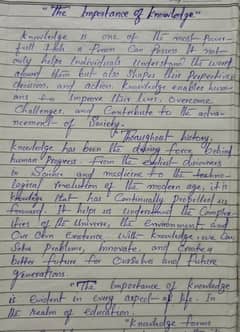 "The Importance of Knowledge"
Knowledge is one of the most Power-
full tools a Person Can Posses It not
only helps Individuals understand the world
around them but also Shapes their Perspectives
decisions, and action. Knowledge enables huma-
ans to Improve their lives, Overcome
Challenges, and Contribute to the adva-
ncement of Society.
"Throughout history,
Knowledge has been the driving force behind
human Progress. From the earliest discoveries
in Science and medicine to the techno-
logical revolution of the modern age, it is
Knowledge that has Continually propelled us
forward. It helps us understand the Complex-
ities of the Universe, the Environment and
Our Own Existence. With Knowledge, we Can
Solve Problems, Innovate, and Create a
better future for Ourselves and Future
generations.
"The Importance of Knowledge
is Evident in Every aspect of life. In
the Realm of Education.
"Knowledge forms